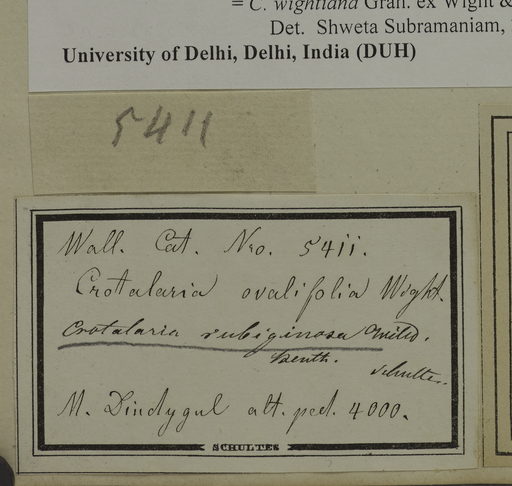 = C. wightiana Grah. ex Wight &
Det. Shweta Subramaniam,
University of Delhi, Delhi, India (DUH)
5411
Wall. Cat. Nro. 5411.
Crotalaria ovalifolia Wight.
Crotalaria rubiginosa Willd.
Benth.
Schultes.
M. Dindygul alt. ped. 4000.
SCHULTES